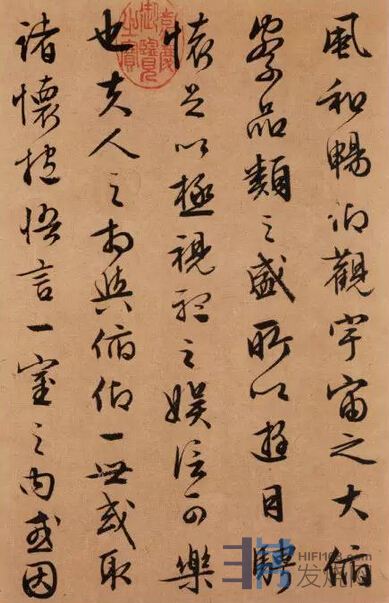 風和暢仰觀宇宙之大俯
察品類之盛所以遊目騁
懷足以極視聽之娛信可樂
也夫人之相與俯仰一世或取
諸懷抱悟言一室之內或因
发烧网